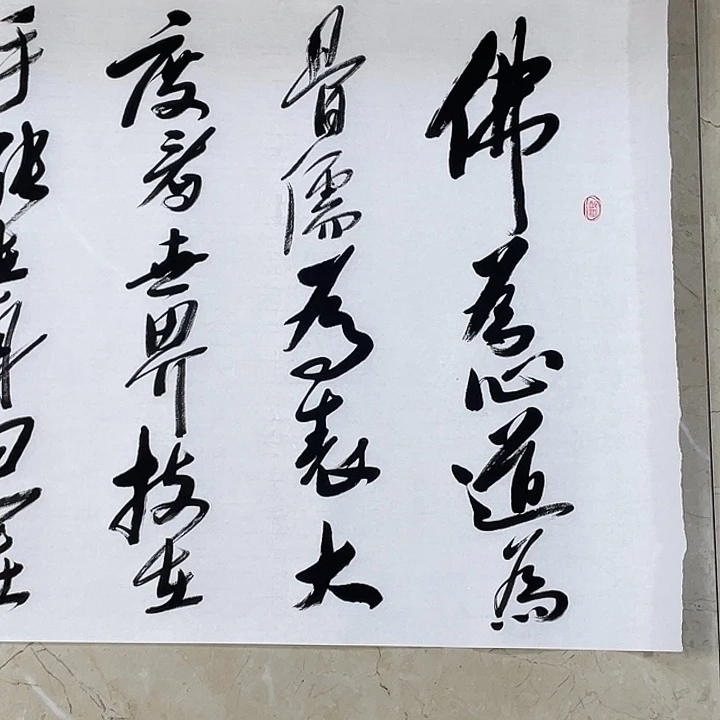 佛為心道為
骨儒為表大
度看世界技在
手能在身